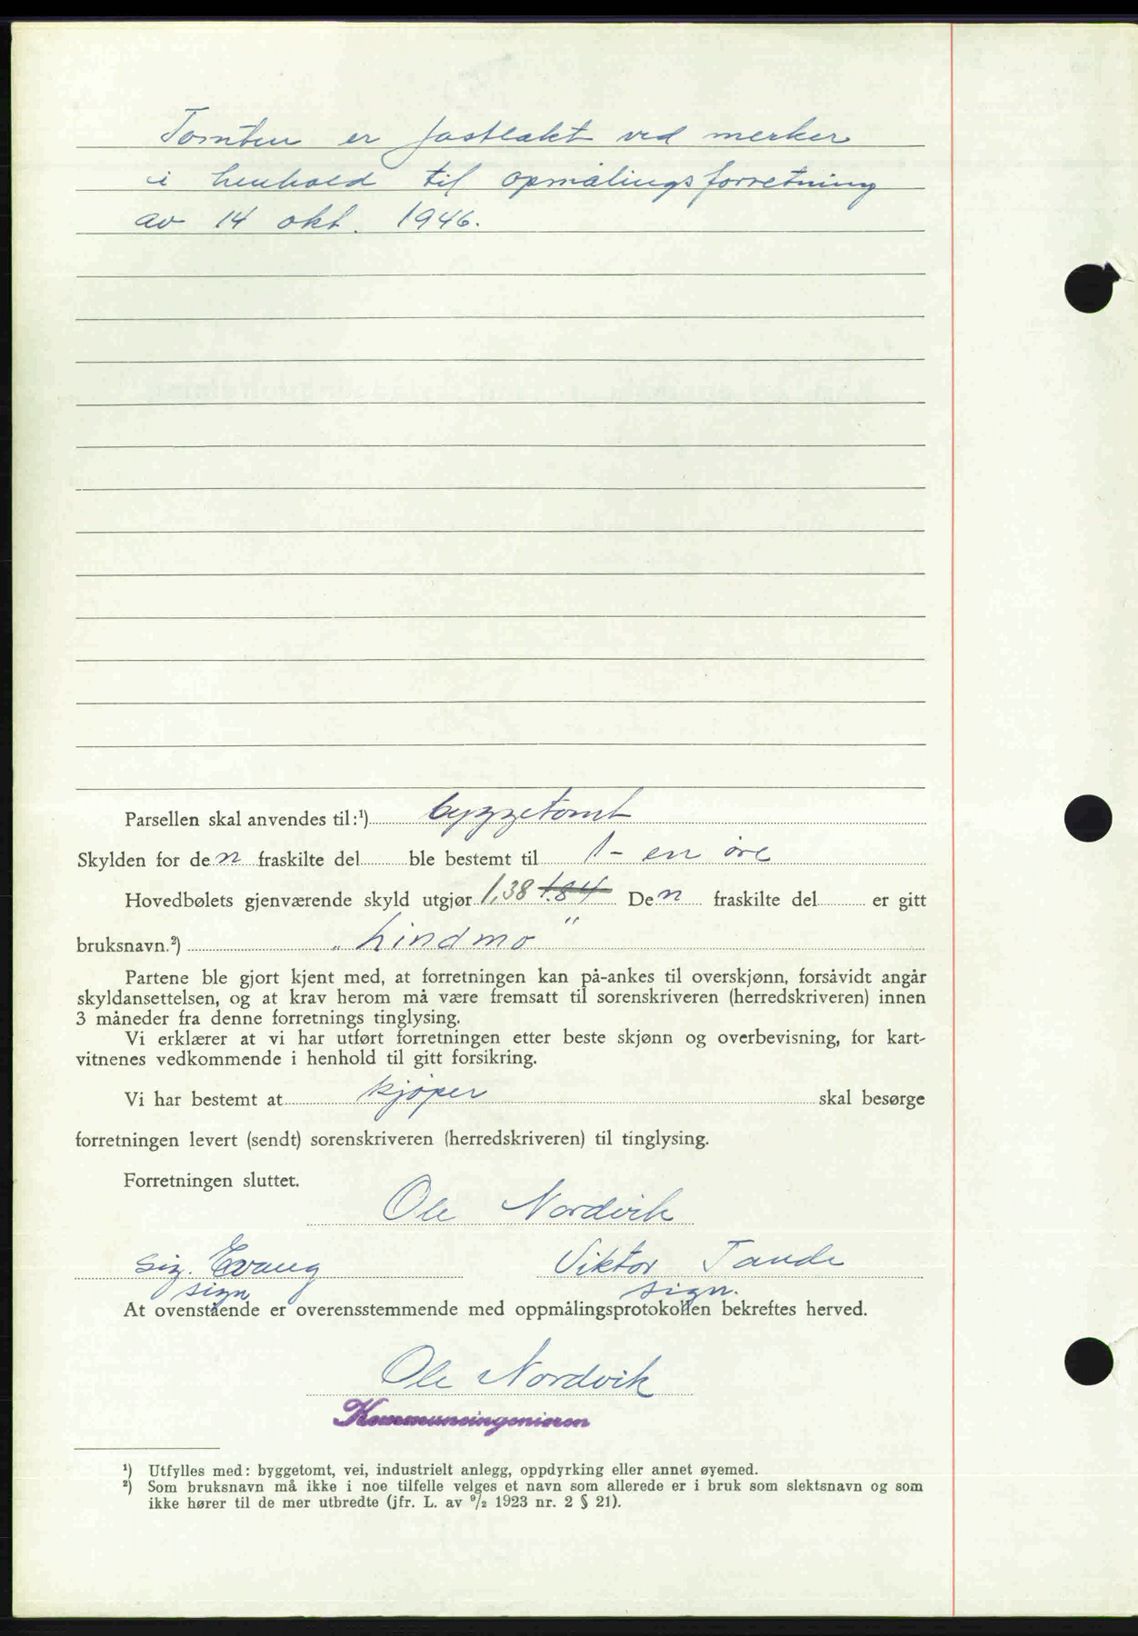 Tomten er fastlakt ved merker
i henhold til opmålingsforretning
av 14 okt. 1946.
Parsellen skal anvendes til:¹) byggetomt
Skylden for den fraskilte del ble bestemt til 1 - en øre
Hovedbølets gjenværende skyld utgjør 1,38 1.84 Den fraskilte del er gitt
bruksnavn.²) „Lindmo"
Partene ble gjort kjent med, at forretningen kan på-ankes til overskjønn, forsåvidt angår
skyldansettelsen, og at krav herom må være fremsatt til sorenskriveren (herredskriveren) innen
3 måneder fra denne forretnings tinglysing.
Vi erklærer at vi har utført forretningen etter beste skjønn og overbevisning, for kart-
vitnenes vedkommende i henhold til gitt forsikring.
Vi har bestemt at kjøper skal besørge
forretningen levert (sendt) sorenskriveren (herredskriveren) til tinglysing.
Forretningen sluttet.
Ole Nordvik
Sig. Evang Viktor Tande
sign sign.
At ovenstående er overensstemmende med oppmålingsprotokollen bekreftes herved.
Ole Nordvik
Kommuneingeniøren
¹) Utfylles med: byggetomt, vei, industrielt anlegg, oppdyrking eller annet øyemed.
²) Som bruksnavn må ikke i noe tilfelle velges et navn som allerede er i bruk som slektsnavn og som
ikke hører til de mer utbredte (jfr. L. av ⁹/₂ 1923 nr. 2 § 21).